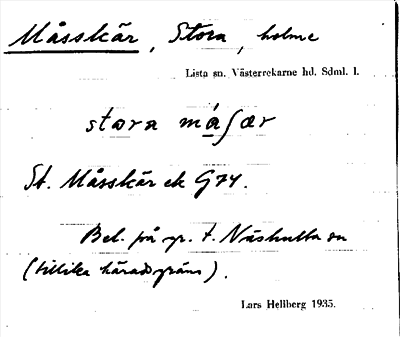 Måsskär, Stora, holme
Lista sn. Västerrekarne hd. Sdml. l.
stora måsær
St. Måsskär ek G74.
Bel. på gr. t. Näshulta sn
(tillika häradsgräns).
Lars Hellberg 1935.